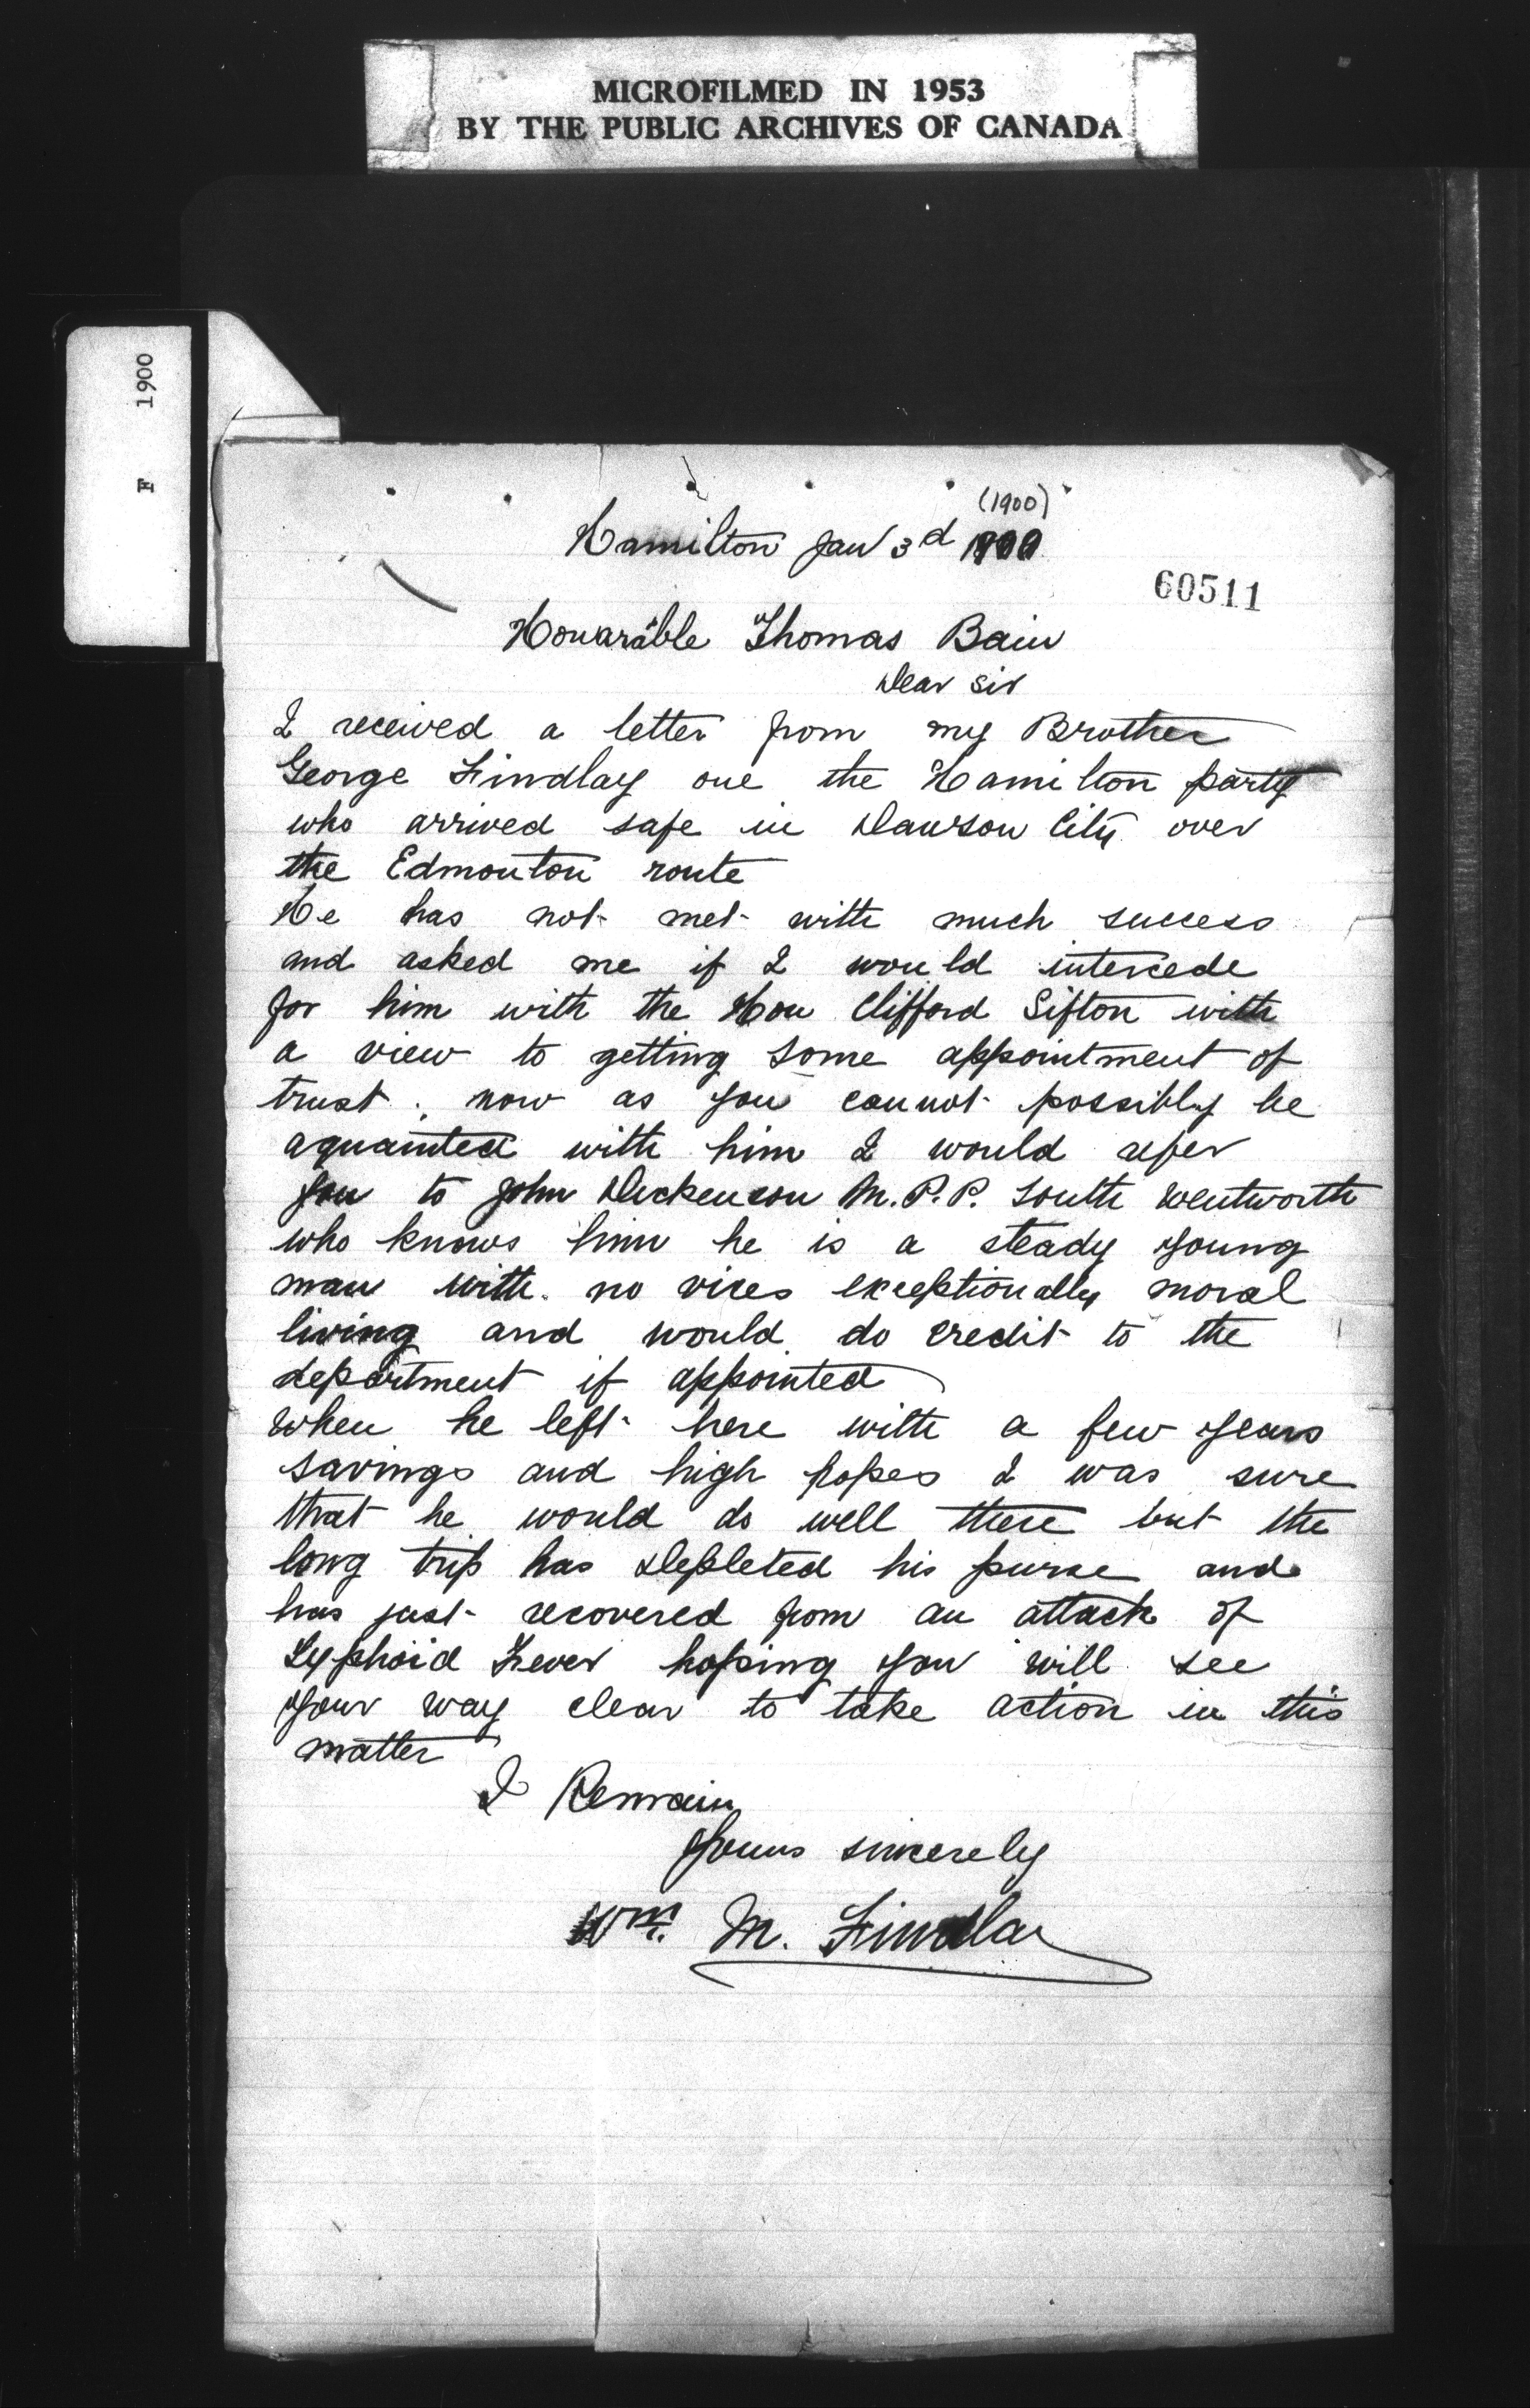 MICROFILMED IN 1953
BY THE PUBLIC ARCHIVES OF CANADA
F 1900
(1900)
Hamilton Jan 3d 1900
60511
Honarable Thomas Bain
Dear Sir
I received a letter from my Brother
George Findlay one the Hamilton party
who arrived safe in Dawson City over
the Edmonton route
He has not met with much success
and asked me if I would intercede
for him with the Hon Clifford Sifton with
a view to getting some appointment of
trust. now as you cannot possibly be
aquainted with him I would refer
you to John Dickenson M.P.P. South Wentworth
who knows him he is a steady young
man with no vices exceptionally moral
living and would do credit to the
department if appointed
when he left here with a few years
savings and high hopes I was sure
that he would do well there but the
long trip has depleted his purse and
has just recovered from an attack of
Typhoid Fever hoping you will see
your way clear to take action in this
matter
I Remain
Yours sincerely
Wm. M. Findlay